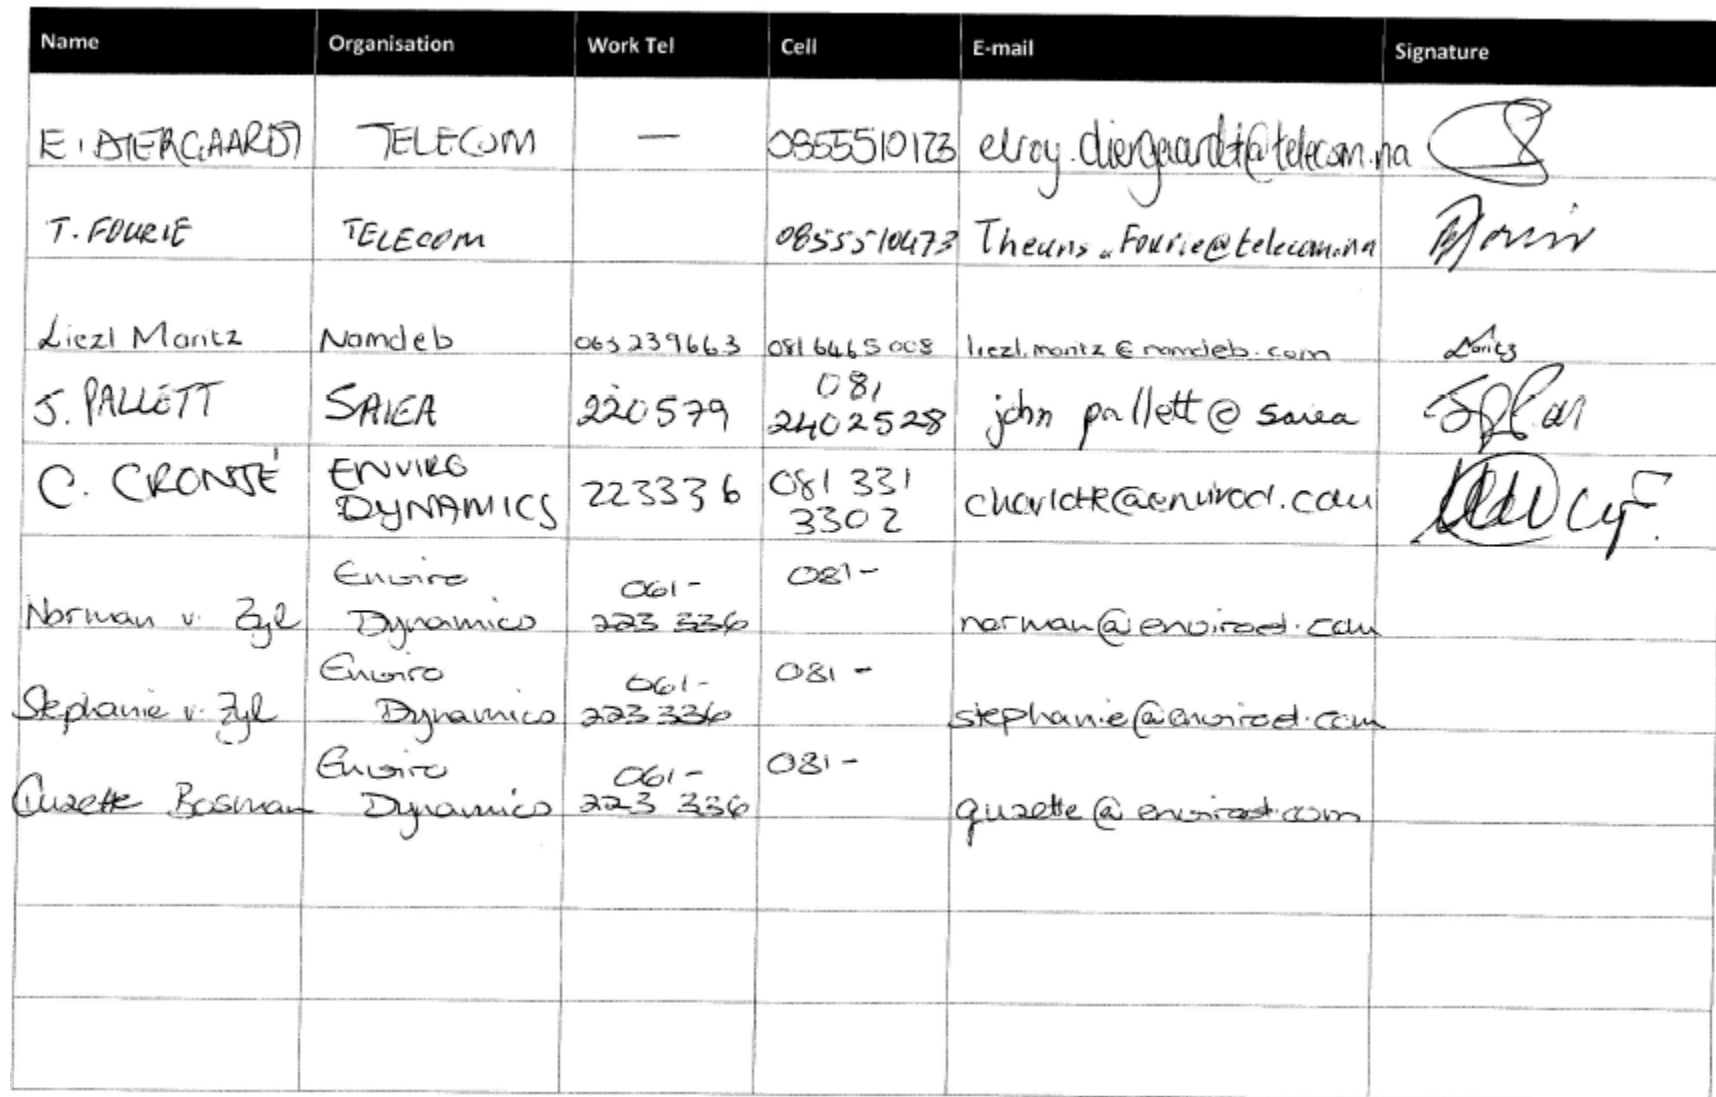 Name Organisation Work Tel Cell E-mail Signature
E. DIERGAARDT TELECOM — 0855510123 elroy.diergaardt@telecom.na
T. FOURIE TELECOM 0855510473 Theuns.Fourie@telecom.na
Liezl Moritz Namdeb 063239663 0816465008 liezl.moritz@namdeb.com Moritz
J. PALLETT SAIEA 220579 081 2402528 john pallett @ saiea
C. CRONJÉ ENVIRO DYNAMICS 223336 081 331 3302 charlotte@envirod.com
Norman v. Zyl Enviro Dynamics 061-223 336 081- norman@envirod.com
Stephanie v. Zyl Enviro Dynamics 061-223336 081- stephanie@envirod.com
Quzette Bosman Enviro Dynamics 061-223 336 081- quzette@envirod.com